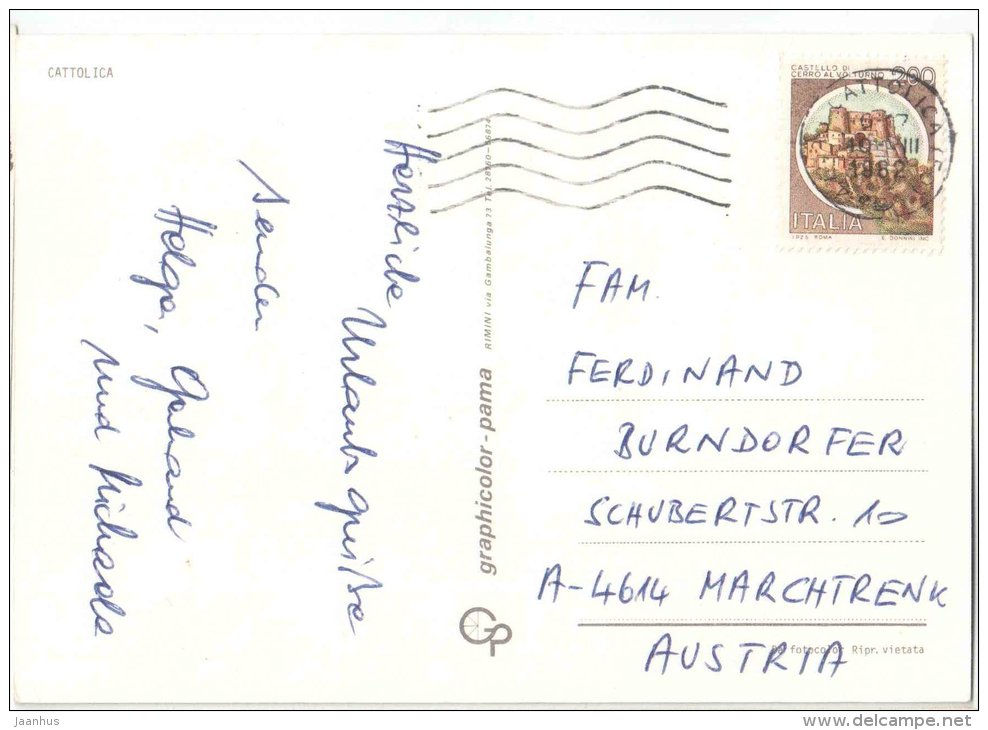 CATTOLICA
CASTELLO DI
CERRO AL VOLTURNO 200
CATTOLICA
1982
ITALIA
I.P.Z.S. ROMA E. DONNINI INC.
Herzliche
Urlaubsgrüße
senden
Helga, Gerhard
und Michaela
graphicolor-pama RIMINI via Gambalunga 73 Tel.
FAM.
FERDINAND
BURNDORFER
SCHUBERTSTR. 10
A-4614 MARCHTRENK
AUSTRIA
fotocolor Ripr. vietata
Jaanhus
www.delcampe.net